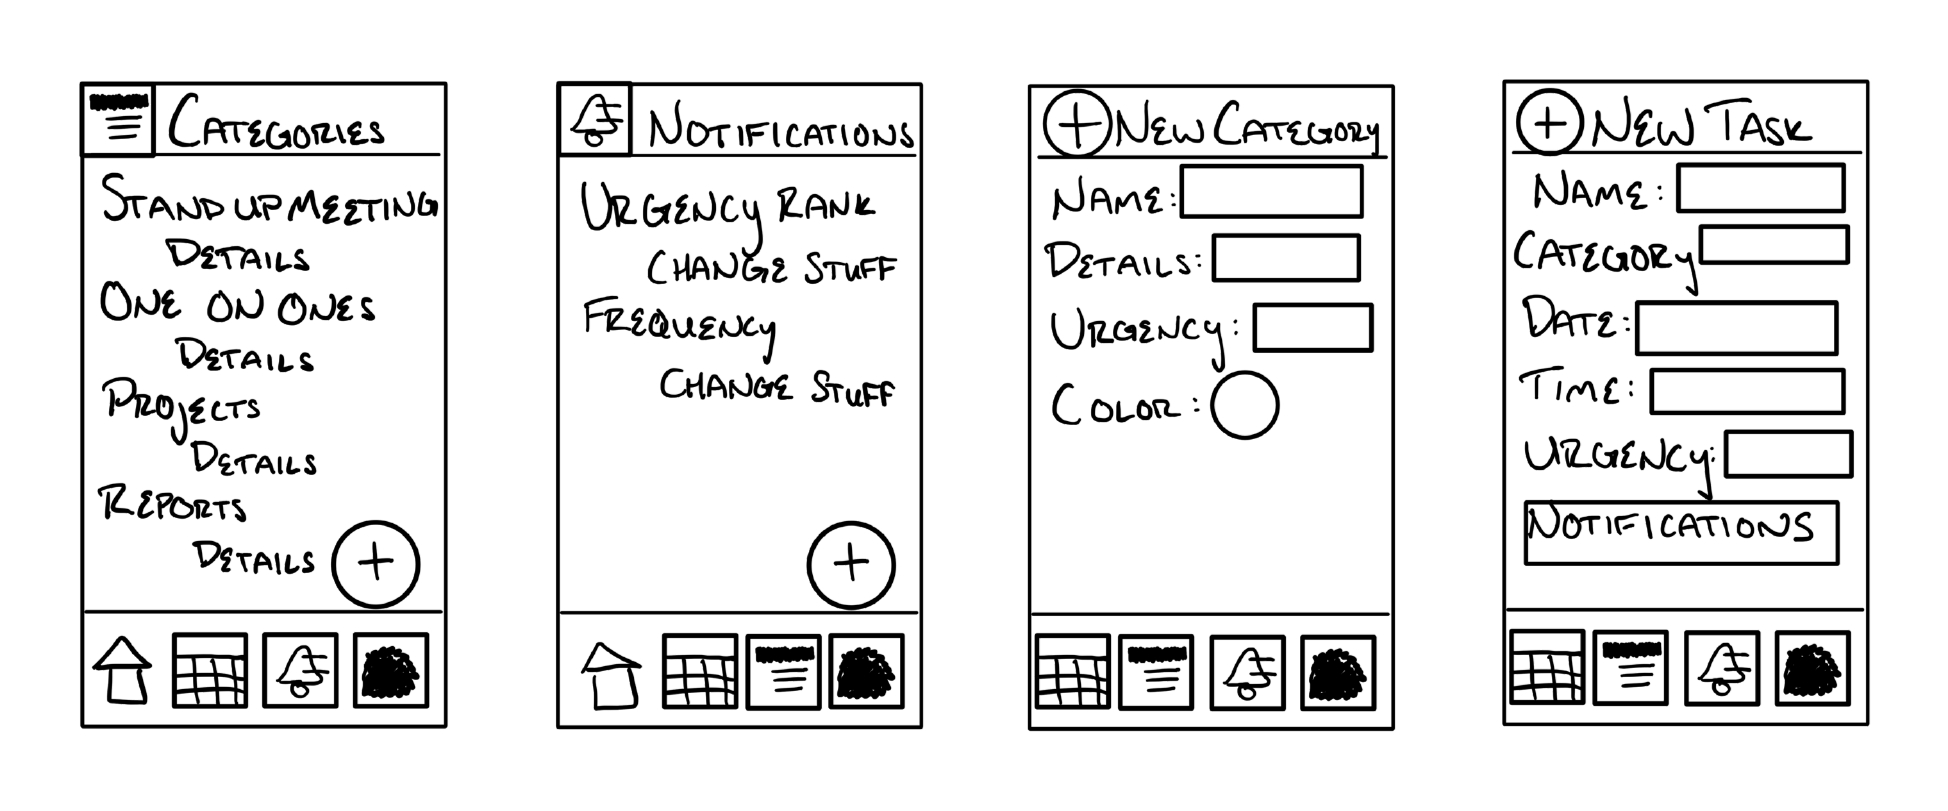 CATEGORIES
STAND UP MEETING
DETAILS
ONE ON ONES
DETAILS
PROJECTS
DETAILS
REPORTS
DETAILS
+
NOTIFICATIONS
URGENCY RANK
CHANGE STUFF
FREQUENCY
CHANGE STUFF
+
+ NEW CATEGORY
NAME:
DETAILS:
URGENCY:
COLOR:
+ NEW TASK
NAME:
CATEGORY
DATE:
TIME:
URGENCY:
NOTIFICATIONS